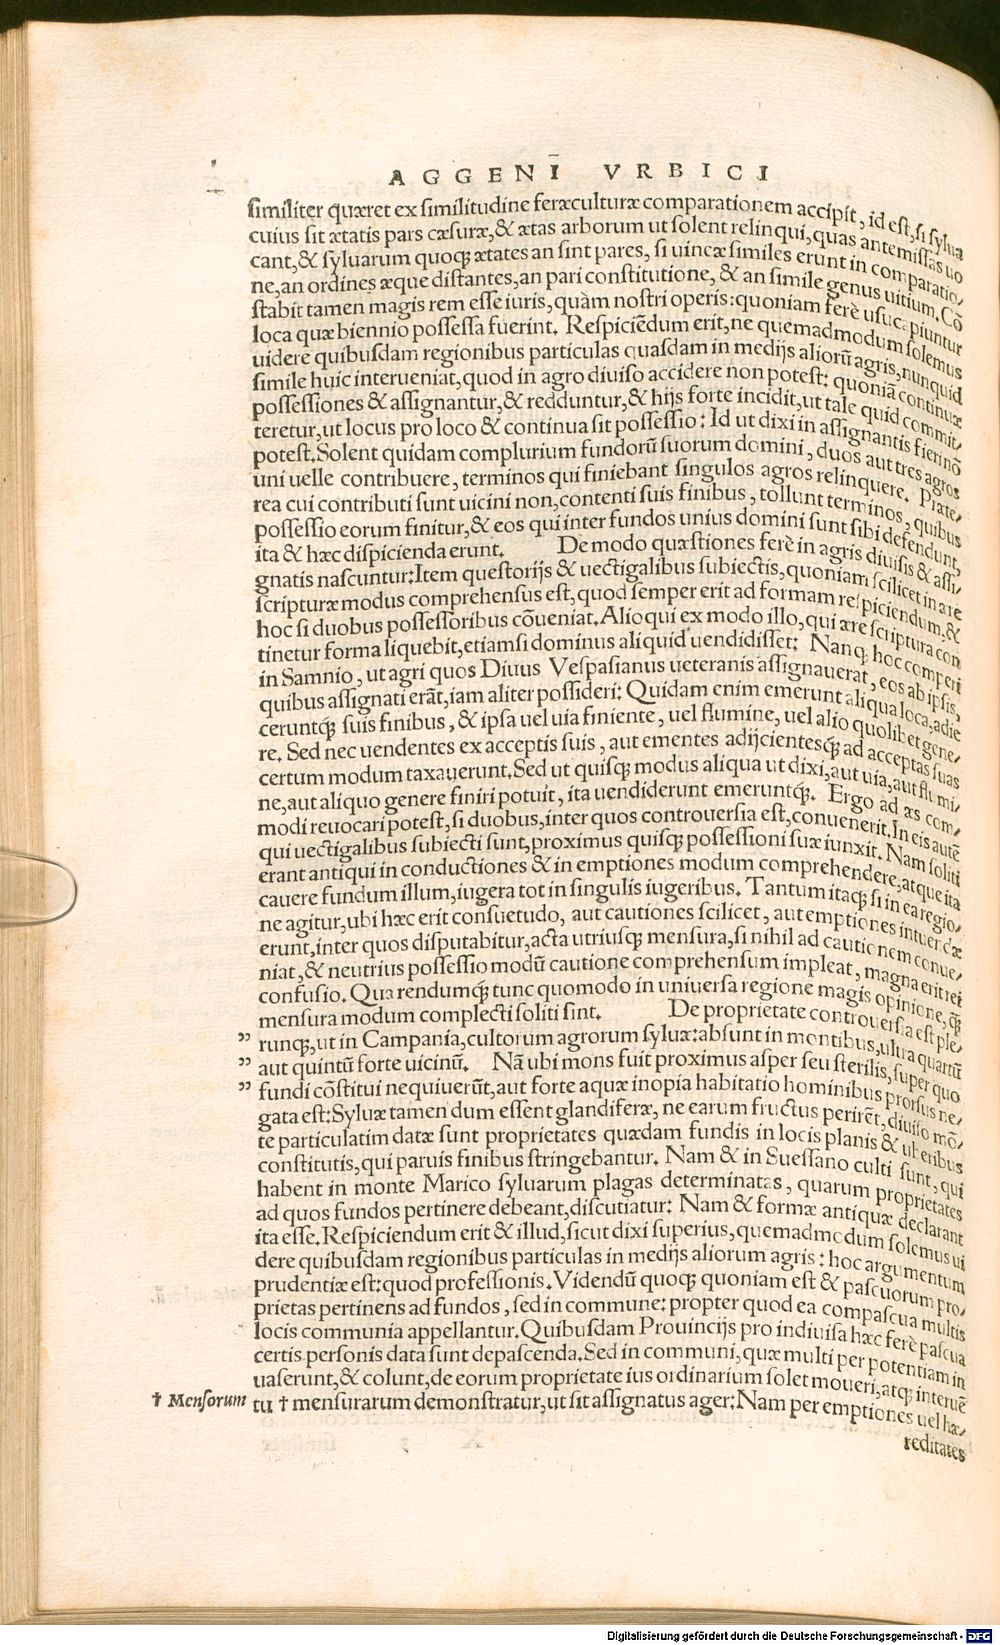 AGGENI VRBICI
similiter quæret ex similitudine feræculturæ comparationem accipit, id est, si sylua
cuius sit ætatis pars cæsuræ, & ætas arborum ut solent relinqui, quas antemissas uo
cant, & syluarum quoqꝫ ætates an sint pares, si uineæ similes erunt in comparatio⸗
ne, an ordines æque distantes, an pari constitutione, & an simile genus uitium. Cõ
stabit tamen magis rem esse iuris, quàm nostri operis: quoniam ferè usucapiuntur
loca quæ biennio possessa fuerint. Respiciẽdum erit, ne quemadmodum solemus
uidere quibusdam regionibus particulas quasdam in medijs aliorũ agris, nunquid
simile huic interueniat, quod in agro diuiso accidere non potest: quoniã continuæ
possessiones & assignantur, & redduntur, & hijs forte incidit, ut tale quid commit⸗
teretur, ut locus pro loco & continua sit possessio: Id ut dixi in assignantis fieri nõ
potest. Solent quidam complurium fundorũ suorum domini, duos aut tres agros
uni uelle contribuere, terminos qui finiebant singulos agros relinquere. Præte⸗
rea cui contributi sunt uicini non, contenti suis finibus, tollunt terminos, quibus
possessio eorum finitur, & eos qui inter fundos unius domini sunt sibi defendunt,
ita & hæc dispicienda erunt. De modo quæstiones ferè in agris diuisis & assi⸗
gnatis nascuntur: Item questorijs & uectigalibus subiectis, quoniam scilicet in ære
scripturæ modus comprehensus est, quod semper erit ad formam respiciendum, &
hoc si duobus possessoribus cõueniat. Alioqui ex modo illo, qui ære scriptura con
tinetur forma liquebit, etiamsi dominus aliquid uendidisset: Nanqꝫ hoc comperi
in Samnio, ut agri quos Diuus Vespasianus ueteranis assignauerat, eos ab ipsis,
quibus assignati erãt, iam aliter possideri: Quidam enim emerunt aliqua loca, adie
ceruntqꝫ suis finibus, & ipsa uel uia finiente, uel flumine, uel alio quolibet gene⸗
re. Sed nec uendentes ex acceptis suis, aut ementes adijcientesqꝫ ad acceptas suas
certum modum taxauerunt. Sed ut quisqꝫ modus aliqua ut dixi, aut uia, aut flumi⸗
ne, aut aliquo genere finiri potuit, ita uendiderunt emeruntqꝫ. Ergo ad æs com⸗
modi reuocari potest, si duobus, inter quos controuersia est, conuenerit. In eis autẽ
qui uectigalibus subiecti sunt, proximus quisqꝫ possessioni suæ iunxit. Nam soliti
erant antiqui in conductiones & in emptiones modum comprehendere, atque ita
cauere fundum illum, iugera tot in singulis iugeribus. Tantum itaqꝫ si in ea regio⸗
ne agitur, ubi hæc erit consuetudo, aut cautiones scilicet, aut emptiones intuendæ
erunt, inter quos disputabitur, acta utriusqꝫ mensura, si nihil ad cautionem conue⸗
niat, & neutrius possessio modũ cautione comprehensum impleat, magna erit rei
confusio. Quærendumqꝫ tunc quomodo in uniuersa regione magis opinione, qꝫ
mensura modum complecti soliti sint. De proprietate controuersia est ple⸗
” runqꝫ, ut in Campania, cultorum agrorum syluæ: absunt in montibus, ultra quartũ
” aut quintũ forte uicinũ. Nã ubi mons fuit proximus asper seu sterilis, super quo
” fundi cõstitui nequiuerũt, aut forte aquæ inopia habitatio hominibus prorsus ne⸗
gata est: Syluæ tamen dum essent glandiferæ, ne earum fructus perirẽt, diuiso mõ⸗
te particulatim datæ sunt proprietates quædam fundis in locis planis & uberibus
constitutis, qui paruis finibus stringebantur. Nam & in Suessano culti sunt, qui
habent in monte Marico syluarum plagas determinatas, quarum proprietates
ad quos fundos pertinere debeant, discutiatur: Nam & formæ antiquæ declarant
ita esse. Respiciendum erit & illud, sicut dixi superius, quemadmodum solemus ui
dere quibusdam regionibus particulas in medijs aliorum agris: hoc argumentum
prudentiæ est: quod professionis. Videndũ quoqꝫ quoniam est & pascuorum pro⸗
prietas pertinens ad fundos, sed in commune: propter quod ea compascua multis
locis communia appellantur. Quibusdam Prouincijs pro indiuisa hæc ferè pascua
certis personis data sunt depascenda. Sed in communi, quæ multi per potentiam in
uaserunt, & colunt, de eorum proprietate ius ordinarium solet moueri, atqꝫ interuẽ
† Mensorum tu † mensurarum demonstratur, ut sit assignatus ager: Nam per emptiones uel hæ⸗
reditates
Digitalisierung gefördert durch die Deutsche Forschungsgemeinschaft - DFG